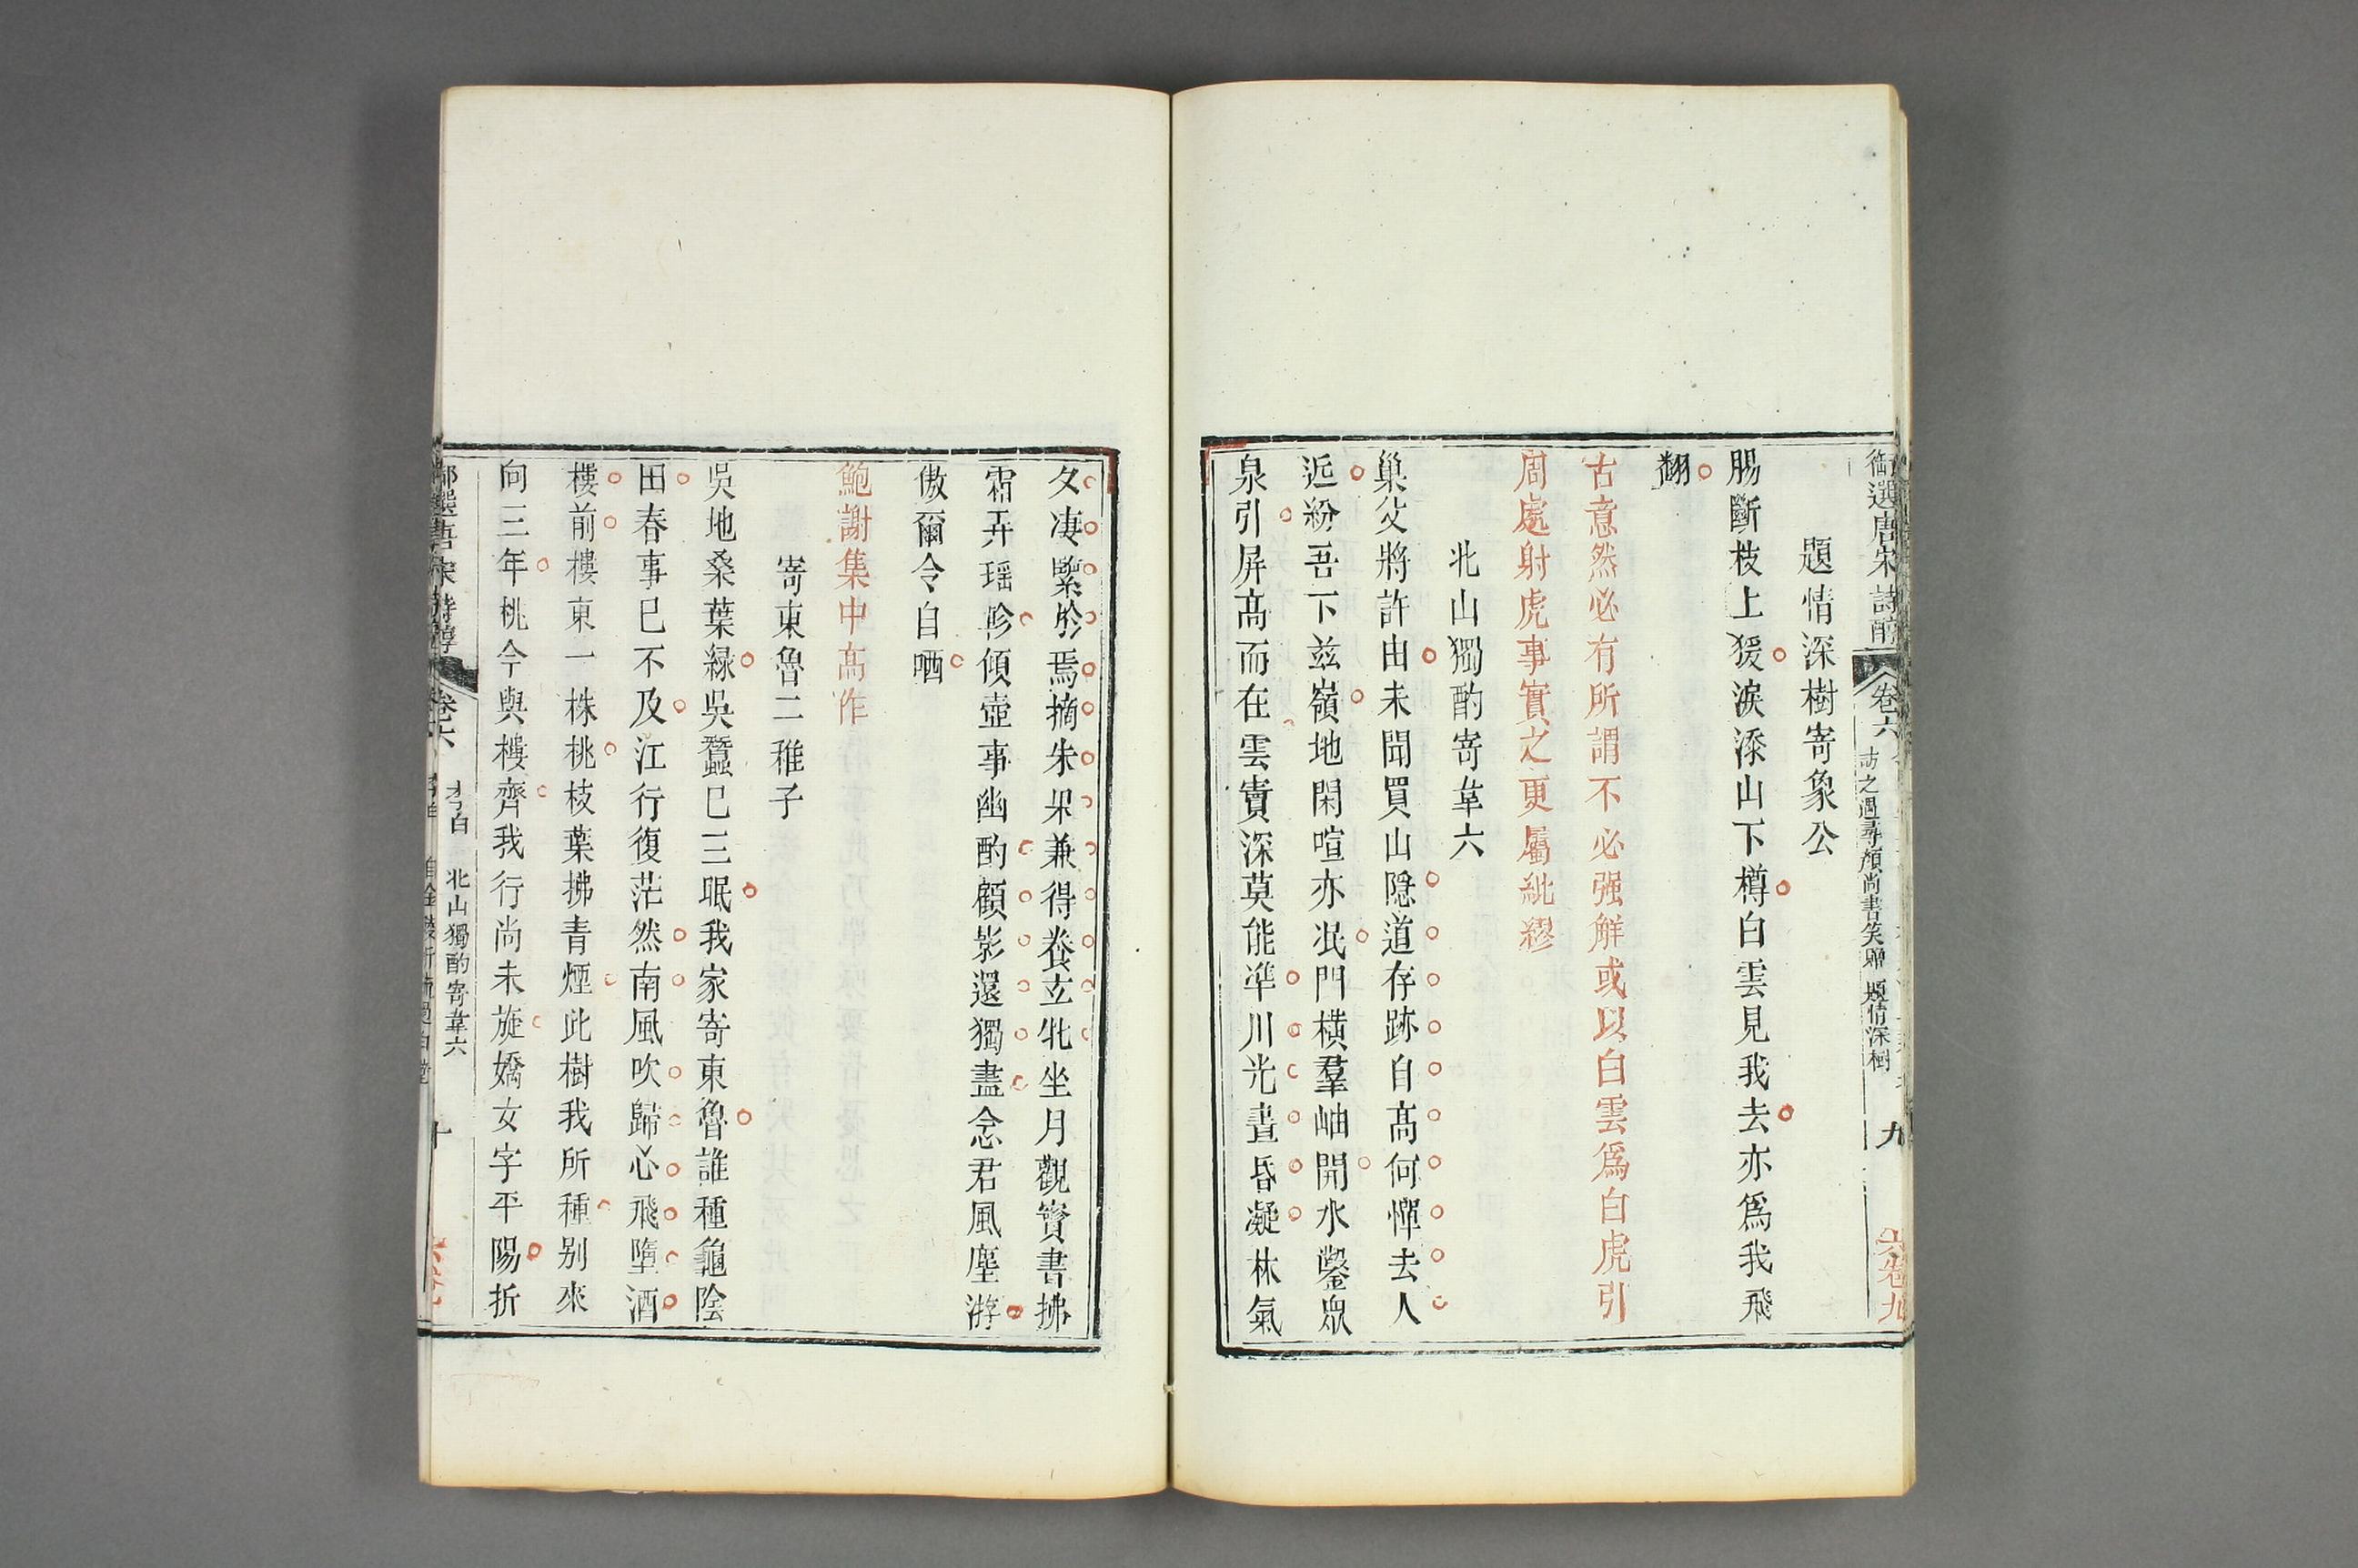 御選唐宋詩醇 卷六 訪之遇尋顏尚書笑贈 題情深樹 九
六卷九
題情深樹寄象公
腸斷枝上猨淚添山下樽白雲見我去亦爲我飛
翻
古意然必有所謂不必强解或以白雲爲白虎引
周處射虎事實之更屬紕繆
北山獨酌寄韋六
巢父將許由未聞買山隱道存跡自高何憚去人
近紛吾下兹嶺地閑喧亦泯門橫羣岫開水鑿衆
泉引屏高而在雲竇深莫能準川光晝昏凝林氣
夕淒緊於焉摘朱果兼得養玄牝坐月觀寳書拂
霜弄瑶軫傾壺事幽酌顧影還獨盡念君風塵游
傲爾令自哂
鮑謝集中高作
寄東魯二稚子
吳地桑葉緑吳蠶已三眠我家寄東魯誰種龜陰
田春事已不及江行復茫然南風吹歸心飛墮酒
樓前樓東一株桃枝葉拂青煙此樹我所種别來
向三年桃今與樓齊我行尚未旋嬌女字平陽折
卷六 李白 北山獨酌寄韋六 十